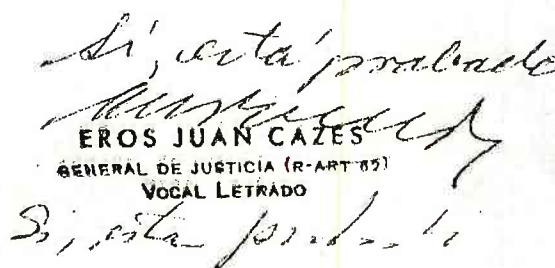 Sí, está probado
EROS JUAN CAZES
GENERAL DE JUSTICIA (R-ART 65)
VOCAL LETRADO
Si, esta